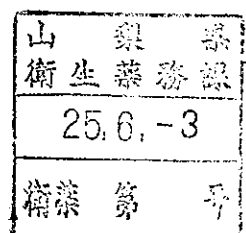 山梨県
衛生薬務課
25.6.-3
衛薬第 号